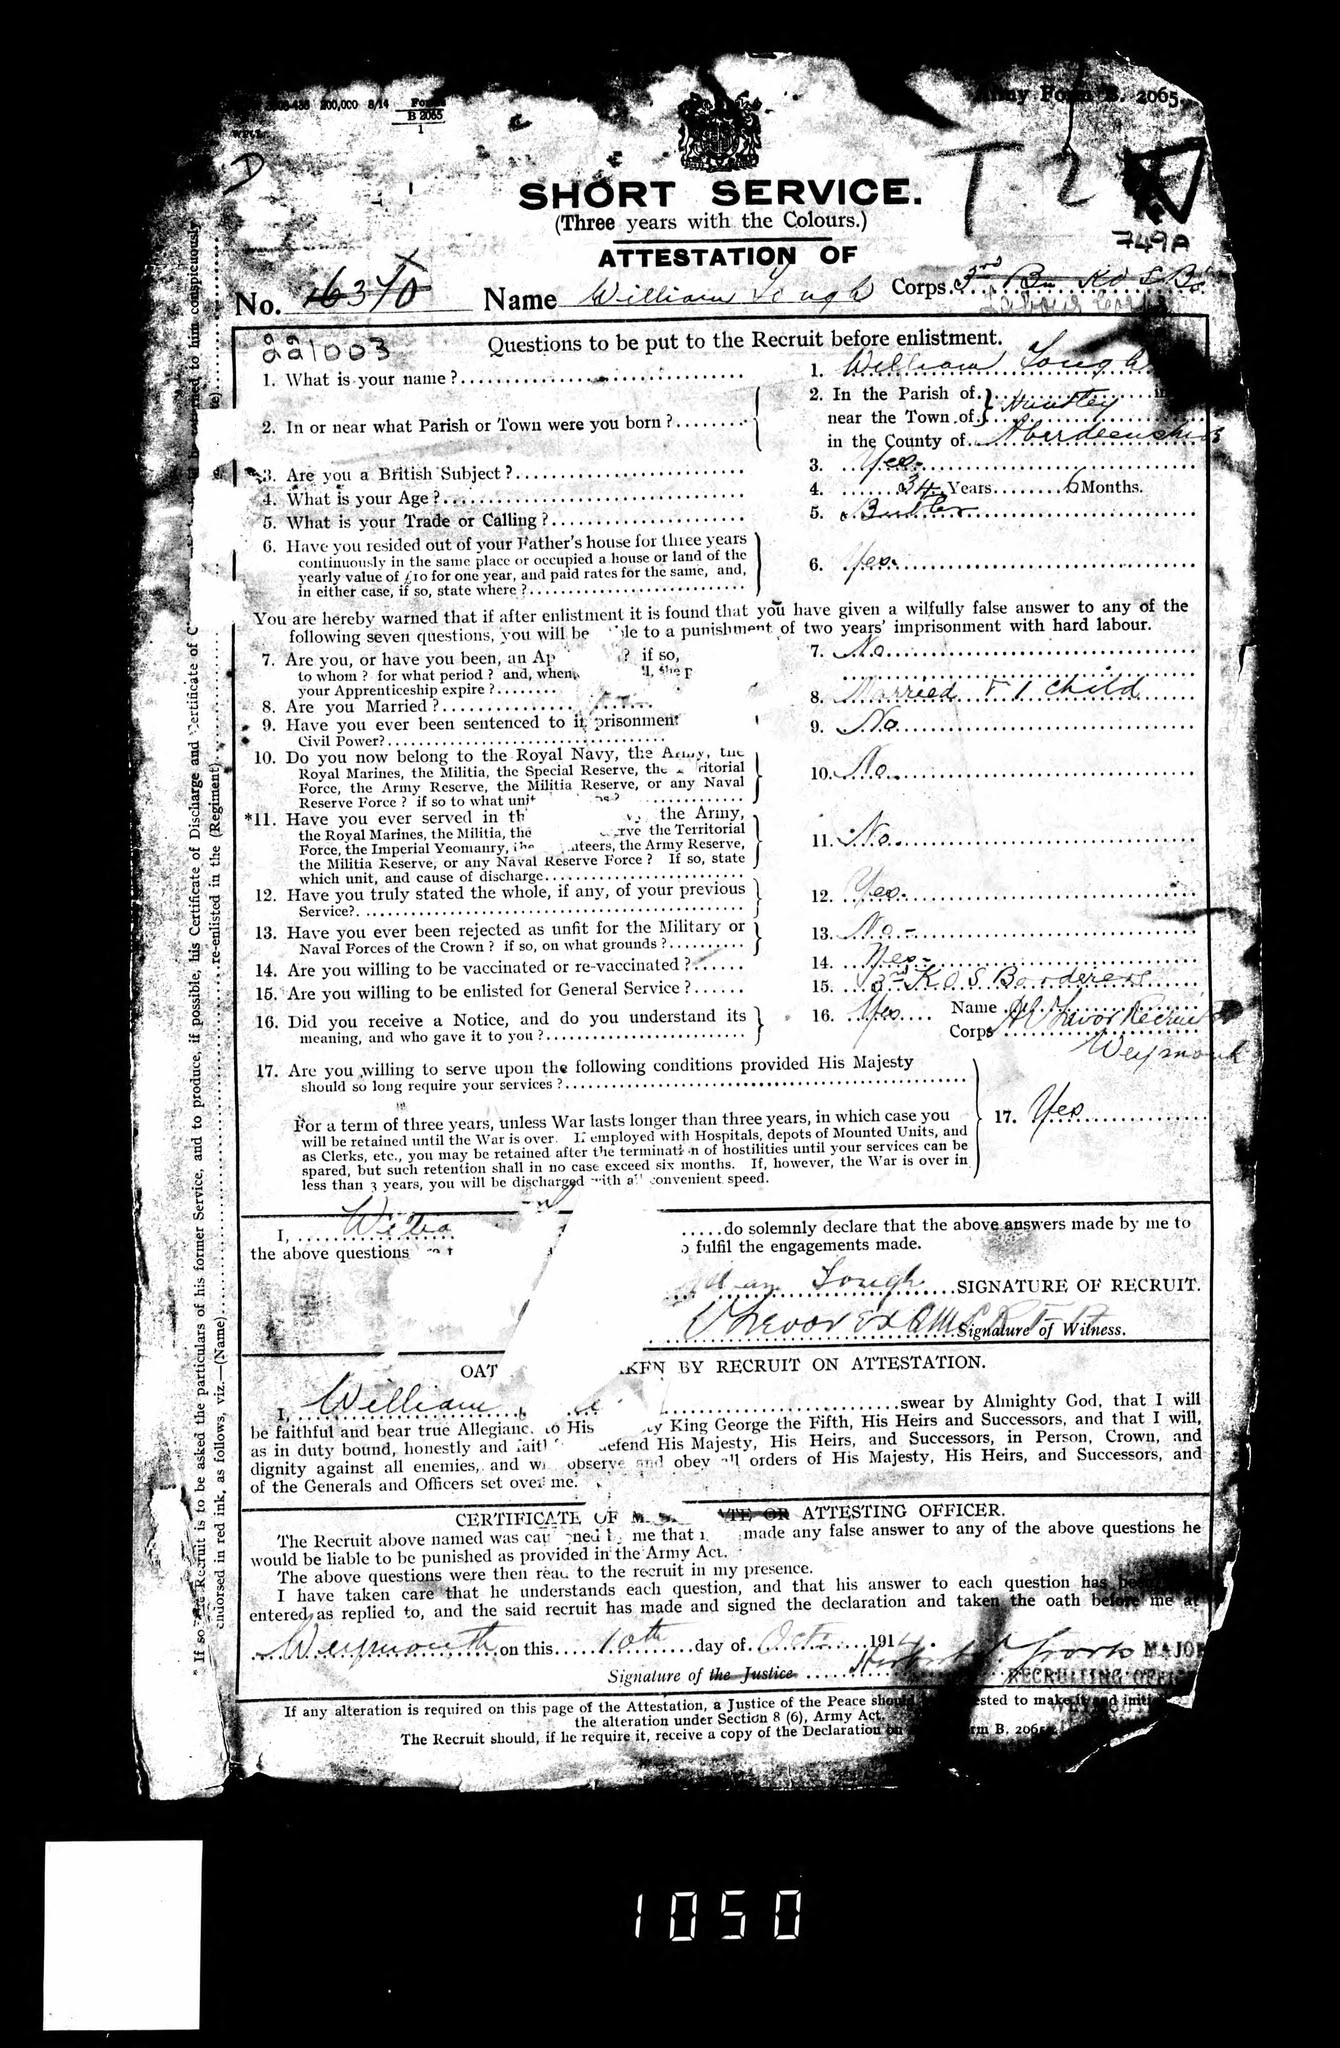 200,000 8/14 Forms
B 2065
1
Army Form B. 2065.
D
T 2
749A
SHORT SERVICE.
(Three years with the Colours.)
ATTESTATION OF
No. 16370 Name William Tough Corps 3rd Bn K O S B
Labour Corps
221003
Questions to be put to the Recruit before enlistment.
1. What is your name ? 1. William Tough
2. In or near what Parish or Town were you born ? 2. In the Parish of
near the Town of Huntley
in the County of Aberdeenshire
3. Are you a British Subject ? 3. Yes.
4. What is your Age ? 4. 34 Years 6 Months.
5. What is your Trade or Calling ? 5. Butler
6. Have you resided out of your Father's house for three years
continuously in the same place or occupied a house or land of the
yearly value of £10 for one year, and paid rates for the same, and,
in either case, if so, state where ? 6. Yes.
You are hereby warned that if after enlistment it is found that you have given a wilfully false answer to any of the
following seven questions, you will be to a punishment of two years' imprisonment with hard labour.
7. Are you, or have you been, an Ap ? if so, 7. No
to whom ? for what period ? and, when,
your Apprenticeship expire ?
8. Are you Married ? 8. Married & 1 child
9. Have you ever been sentenced to imprisonment 9. No
Civil Power?
10. Do you now belong to the Royal Navy, the Army, the
Royal Marines, the Militia, the Special Reserve, the Territorial
Force, the Army Reserve, the Militia Reserve, or any Naval
Reserve Force ? if so to what unit 10. No
*11. Have you ever served in th the Army,
the Royal Marines, the Militia, the the Territorial
Force, the Imperial Yeomanry, the nteers, the Army Reserve,
the Militia Reserve, or any Naval Reserve Force ? If so, state
which unit, and cause of discharge 11. No
12. Have you truly stated the whole, if any, of your previous
Service? 12. Yes.
13. Have you ever been rejected as unfit for the Military or
Naval Forces of the Crown ? if so, on what grounds ? 13. No -
14. Are you willing to be vaccinated or re-vaccinated ? 14. Yes -
15. Are you willing to be enlisted for General Service ? 15. K O S Borderers
16. Did you receive a Notice, and do you understand its
meaning, and who gave it to you ? 16. Yes Name Trevor Recruit
Corps Weymouth
17. Are you willing to serve upon the following conditions provided His Majesty
should so long require your services ?
For a term of three years, unless War lasts longer than three years, in which case you
will be retained until the War is over. If employed with Hospitals, depots of Mounted Units, and
as Clerks, etc., you may be retained after the termination of hostilities until your services can be
spared, but such retention shall in no case exceed six months. If, however, the War is over in
less than 3 years, you will be discharged with all convenient speed.
17. Yes
I, Willia do solemnly declare that the above answers made by me to
the above questions fulfil the engagements made.
Tough SIGNATURE OF RECRUIT.
Trevor Signature of Witness.
OAT KEN BY RECRUIT ON ATTESTATION.
I, William swear by Almighty God, that I will
be faithful and bear true Allegiance to His ty King George the Fifth, His Heirs and Successors, and that I will,
as in duty bound, honestly and faith defend His Majesty, His Heirs, and Successors, in Person, Crown, and
dignity against all enemies, and w observe and obey all orders of His Majesty, His Heirs, and Successors, and
of the Generals and Officers set over me.
CERTIFICATE OF M TE OR ATTESTING OFFICER.
The Recruit above named was cautioned by me that if made any false answer to any of the above questions he
would be liable to be punished as provided in the Army Act.
The above questions were then read to the recruit in my presence.
I have taken care that he understands each question, and that his answer to each question has been
entered as replied to, and the said recruit has made and signed the declaration and taken the oath before me at
Weymouth on this 10th day of Octr 1914.
Signature of the Justice MAJOR
RECRUITING OFFICER
If any alteration is required on this page of the Attestation, a Justice of the Peace should ested to make it and initi
the alteration under Section 8 (6), Army Act.
The Recruit should, if he require it, receive a copy of the Declaration on rm B. 2065
* If so the Recruit is to be asked the particulars of his former Service, and to produce, if possible, his Certificate of Discharge and Certificate of C to him conspicuously
endorsed in red ink, as follows, viz.—(Name) re-enlisted in the (Regiment) te)
1050